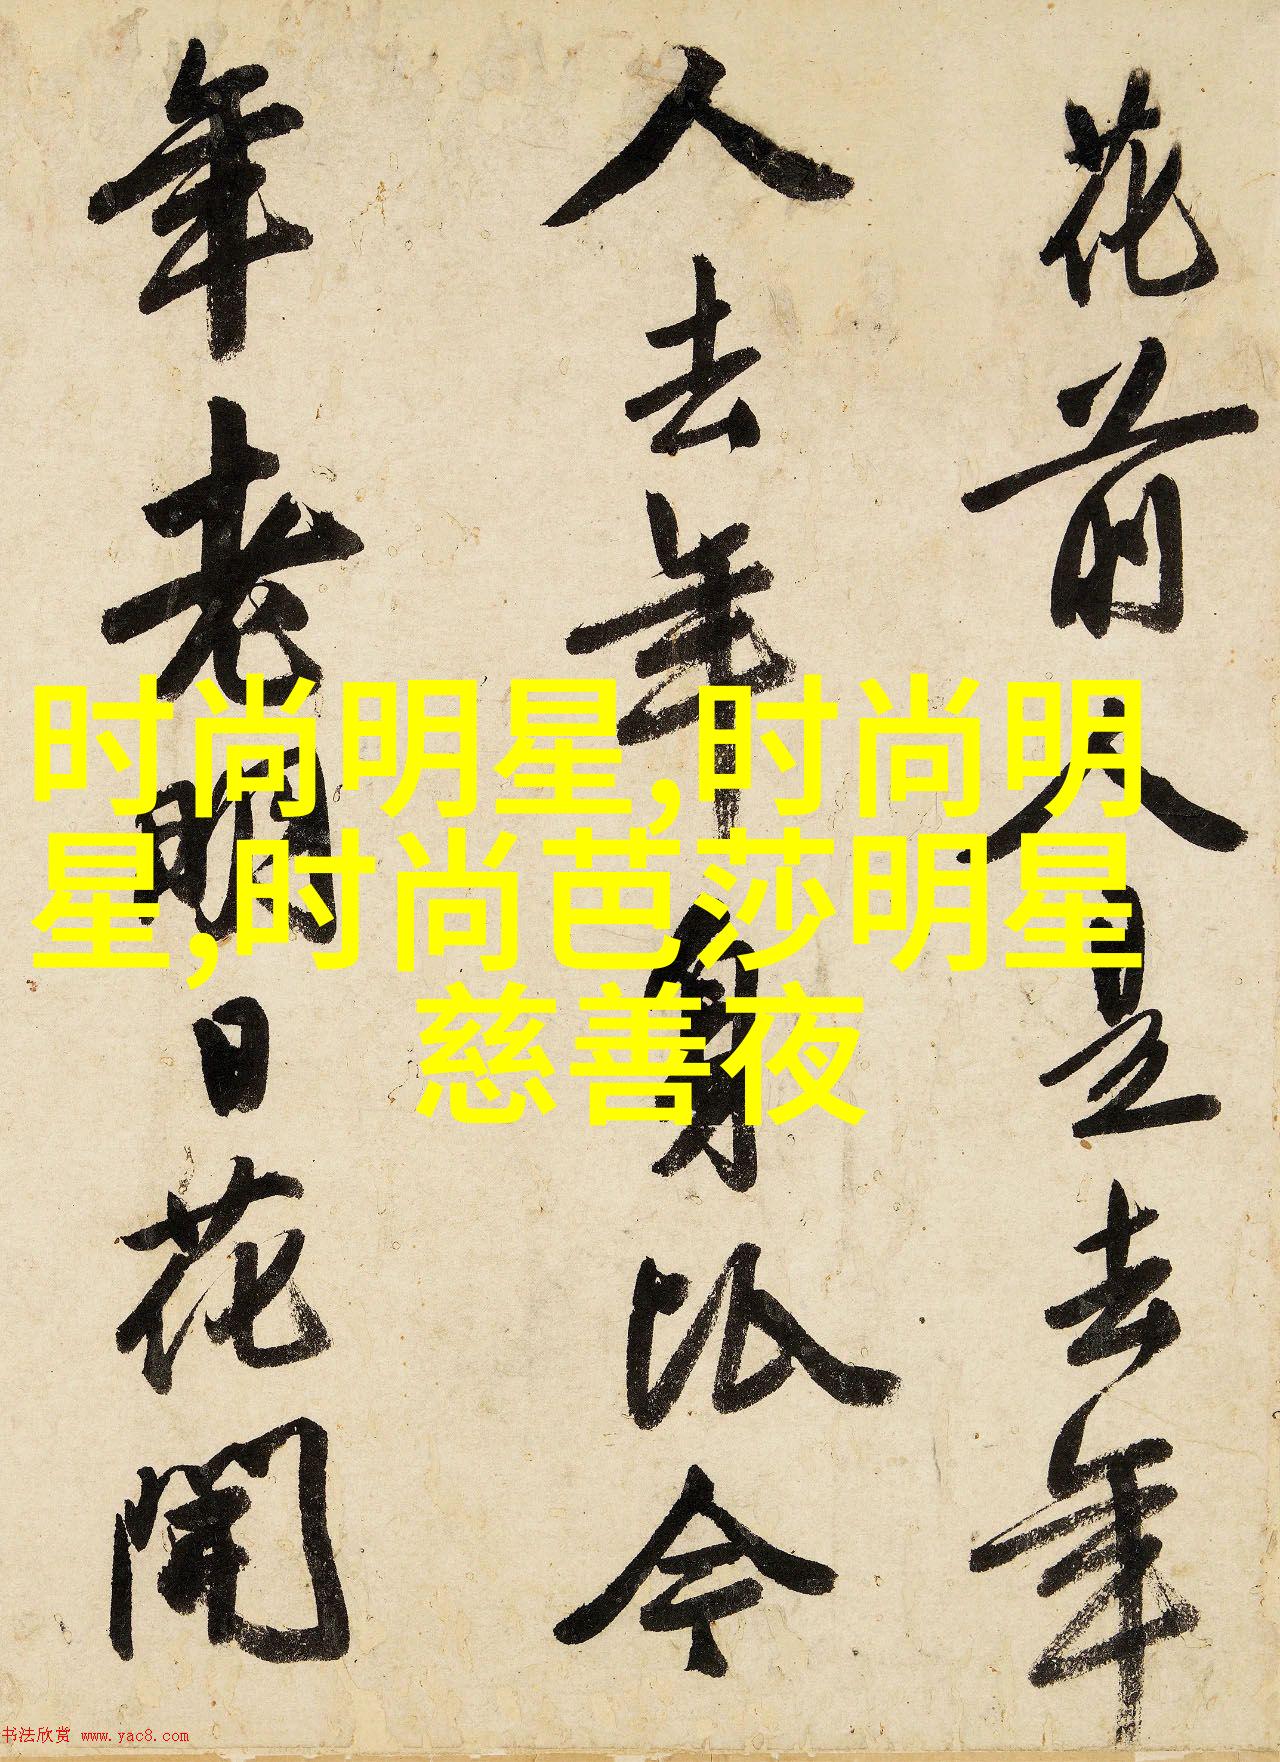 花前人是去年
人去年身比今
年老明日花開
时尚明星,时尚明
星,时尚芭莎明星
慈善夜
书法欣赏 www.yac8.com